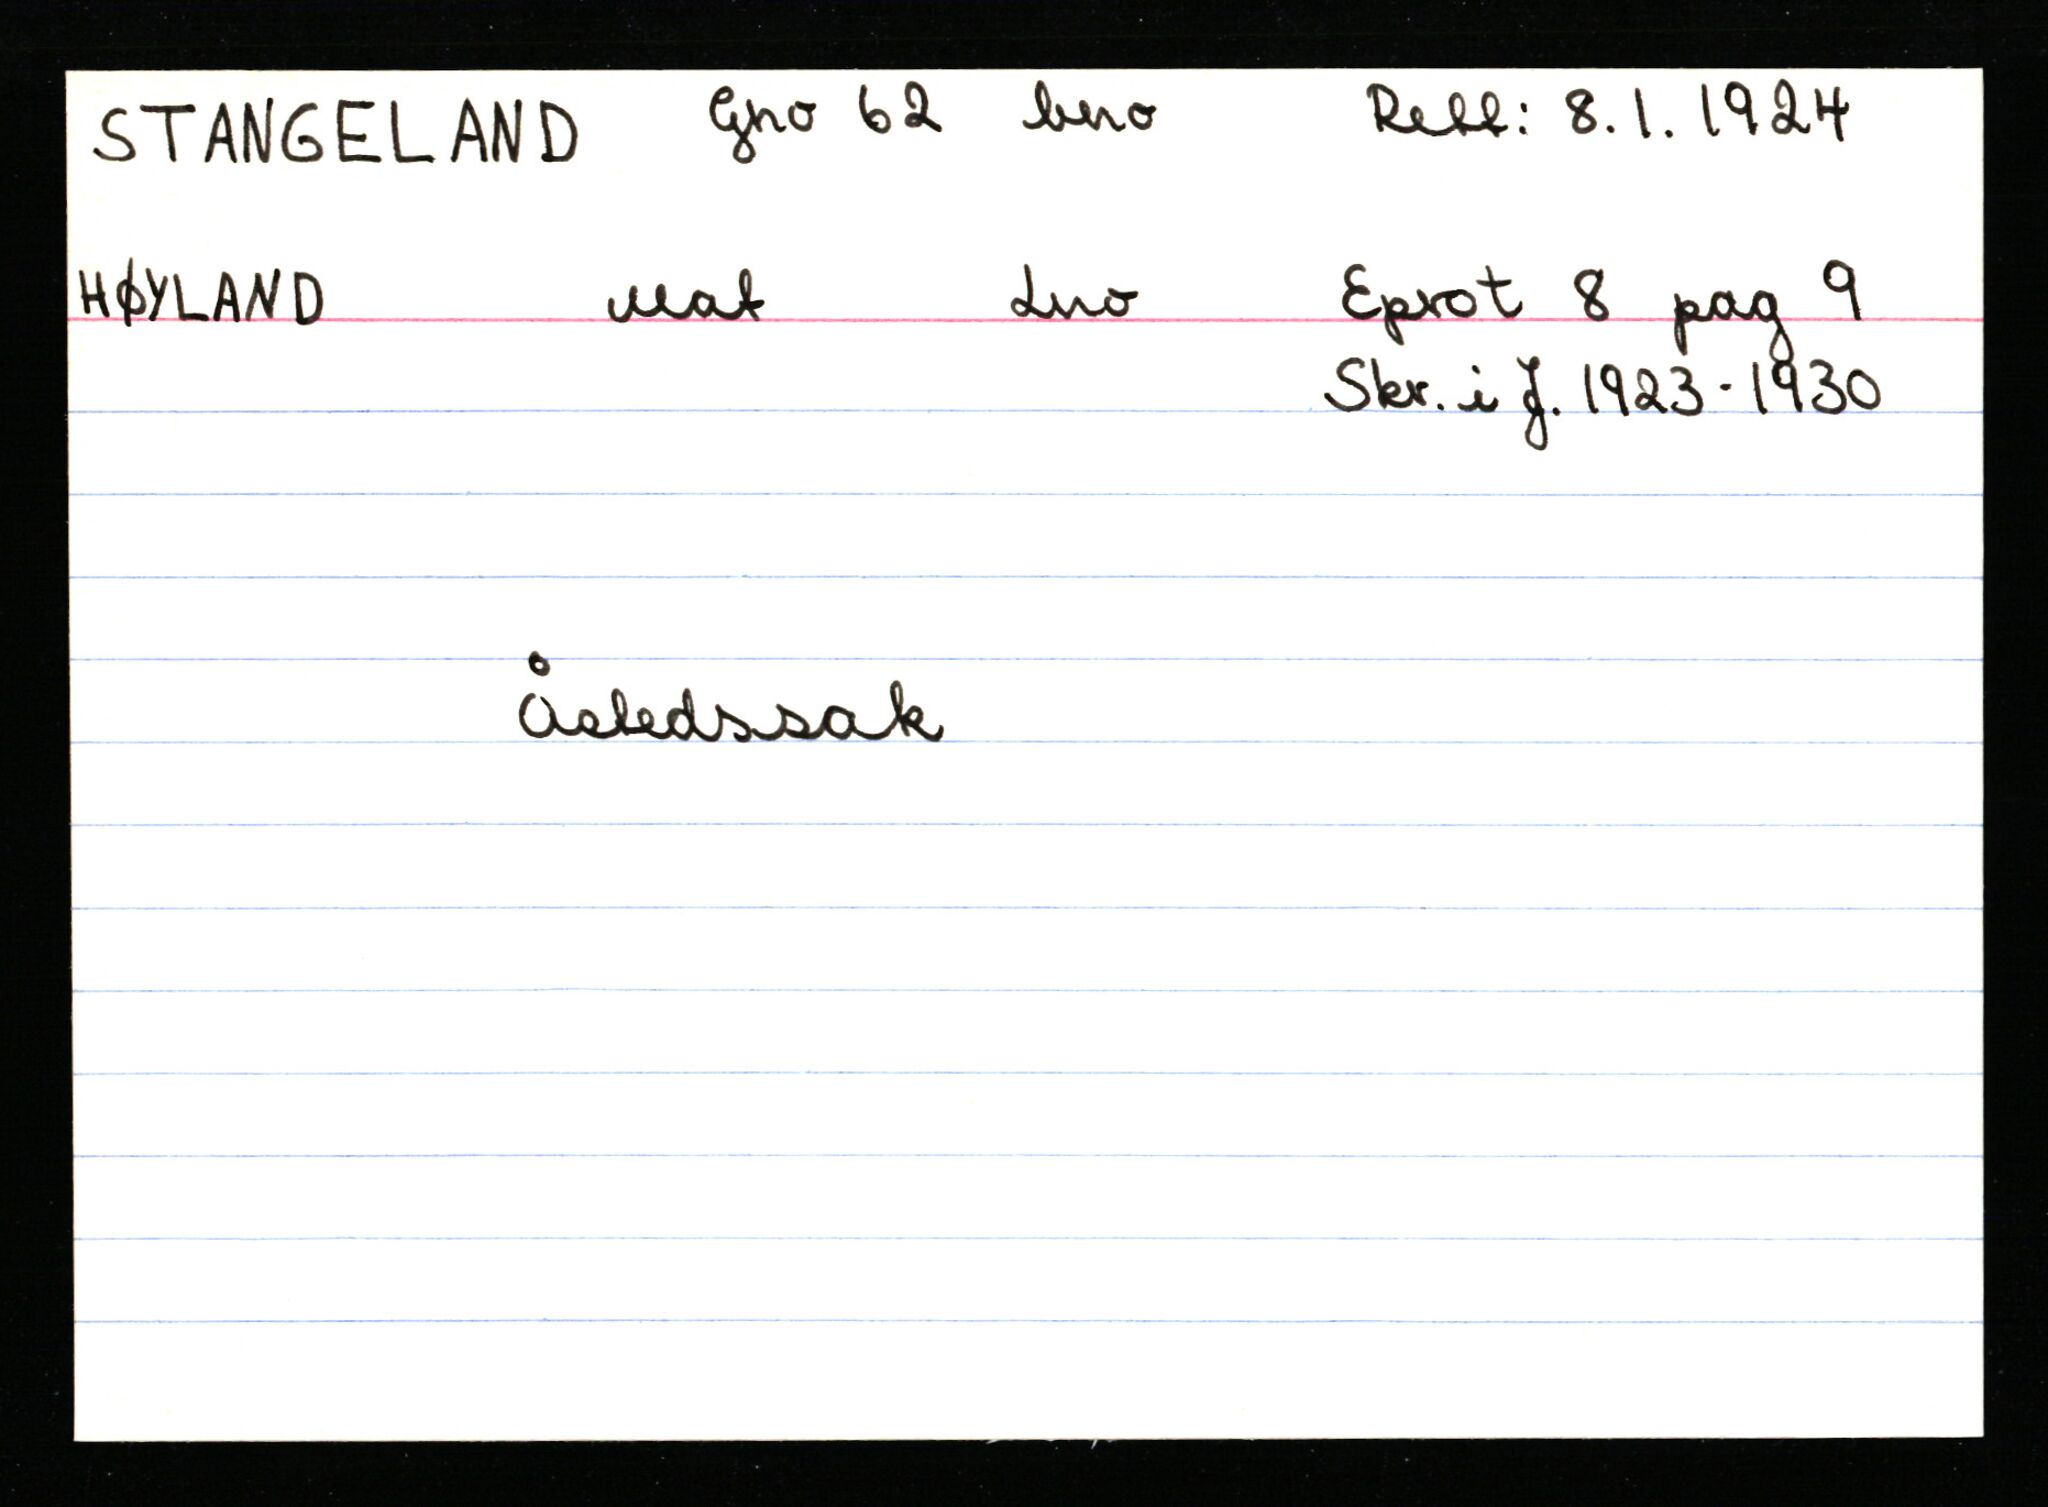 STANGELAND Gno 62 bno Rett: 8.1.1924
HØYLAND Mat Lno Eprot 8 pag 9
Skr. i J. 1923-1930
Åstedssak